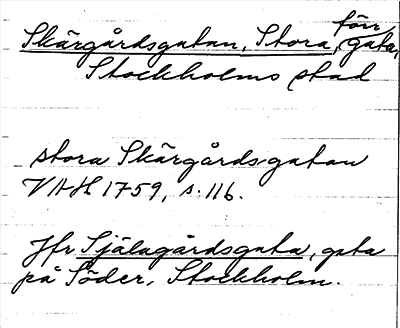 Skärgårdsgatan, Stora, förr gata,
Stockholms stad
stora Skärgårdsgatan
VAH 1759, s. 116.
Jfr Själagårdsgata, gata
på Söder, Stockholm.